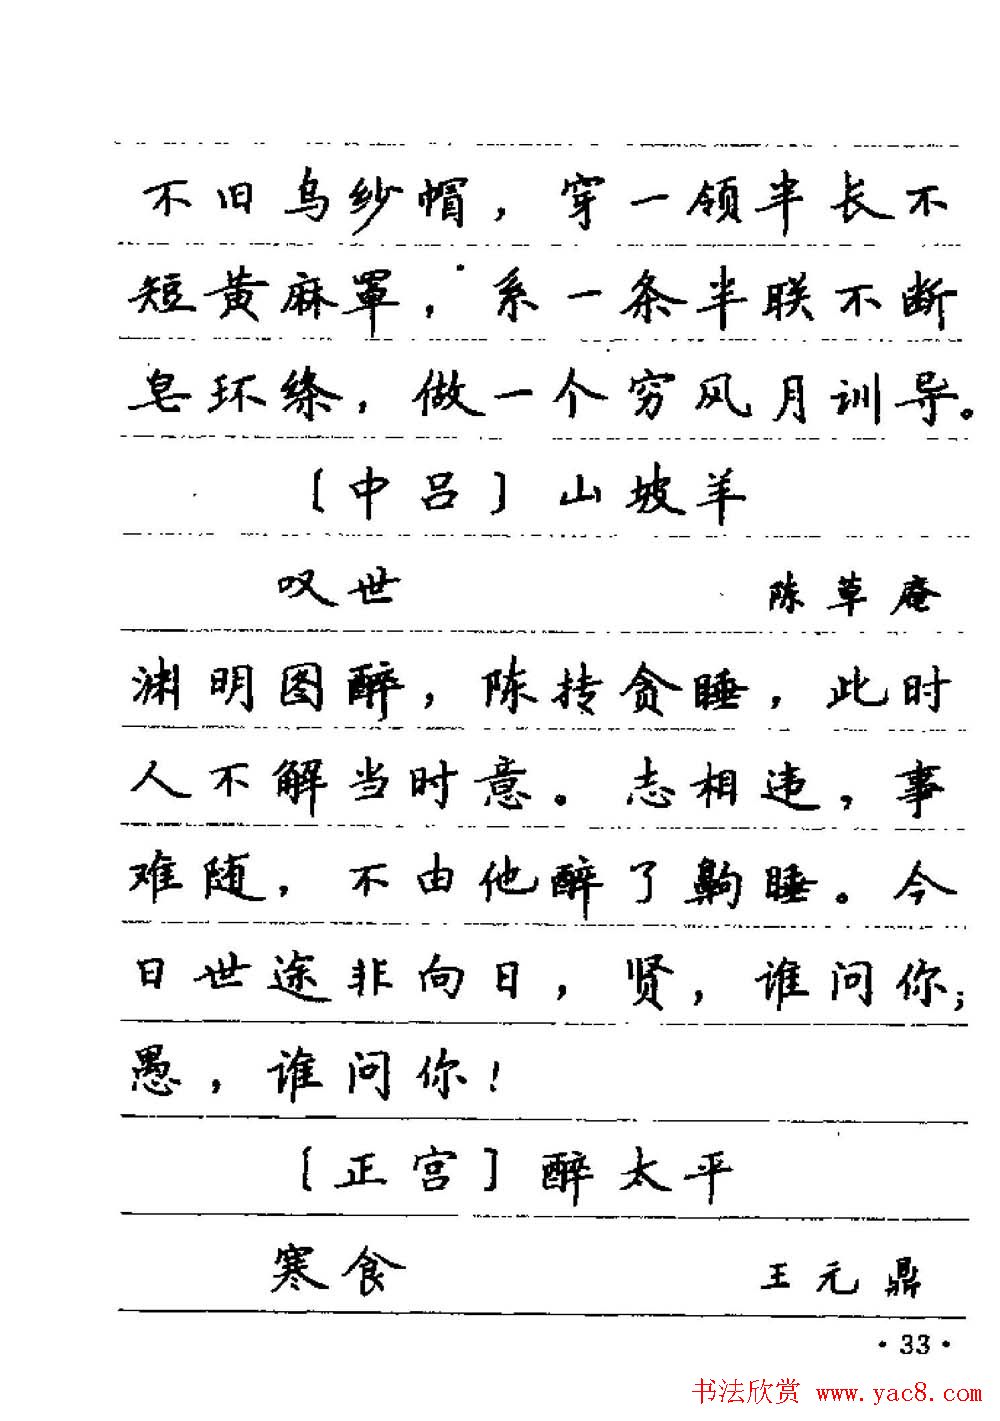 不旧乌纱帽，穿一领半长不
短黄麻罩，系一条半联不断
皂环绦，做一个穷风月训导。
〔中吕〕山坡羊
叹世 陈草庵
渊明图醉，陈抟贪睡，此时
人不解当时意。志相违，事
难随，不由他醉了齁睡。今
日世途非向日，贤，谁问你；
愚，谁问你！
〔正宫〕醉太平
寒食 王元鼎
·33·
书法欣赏 www.yac8.com